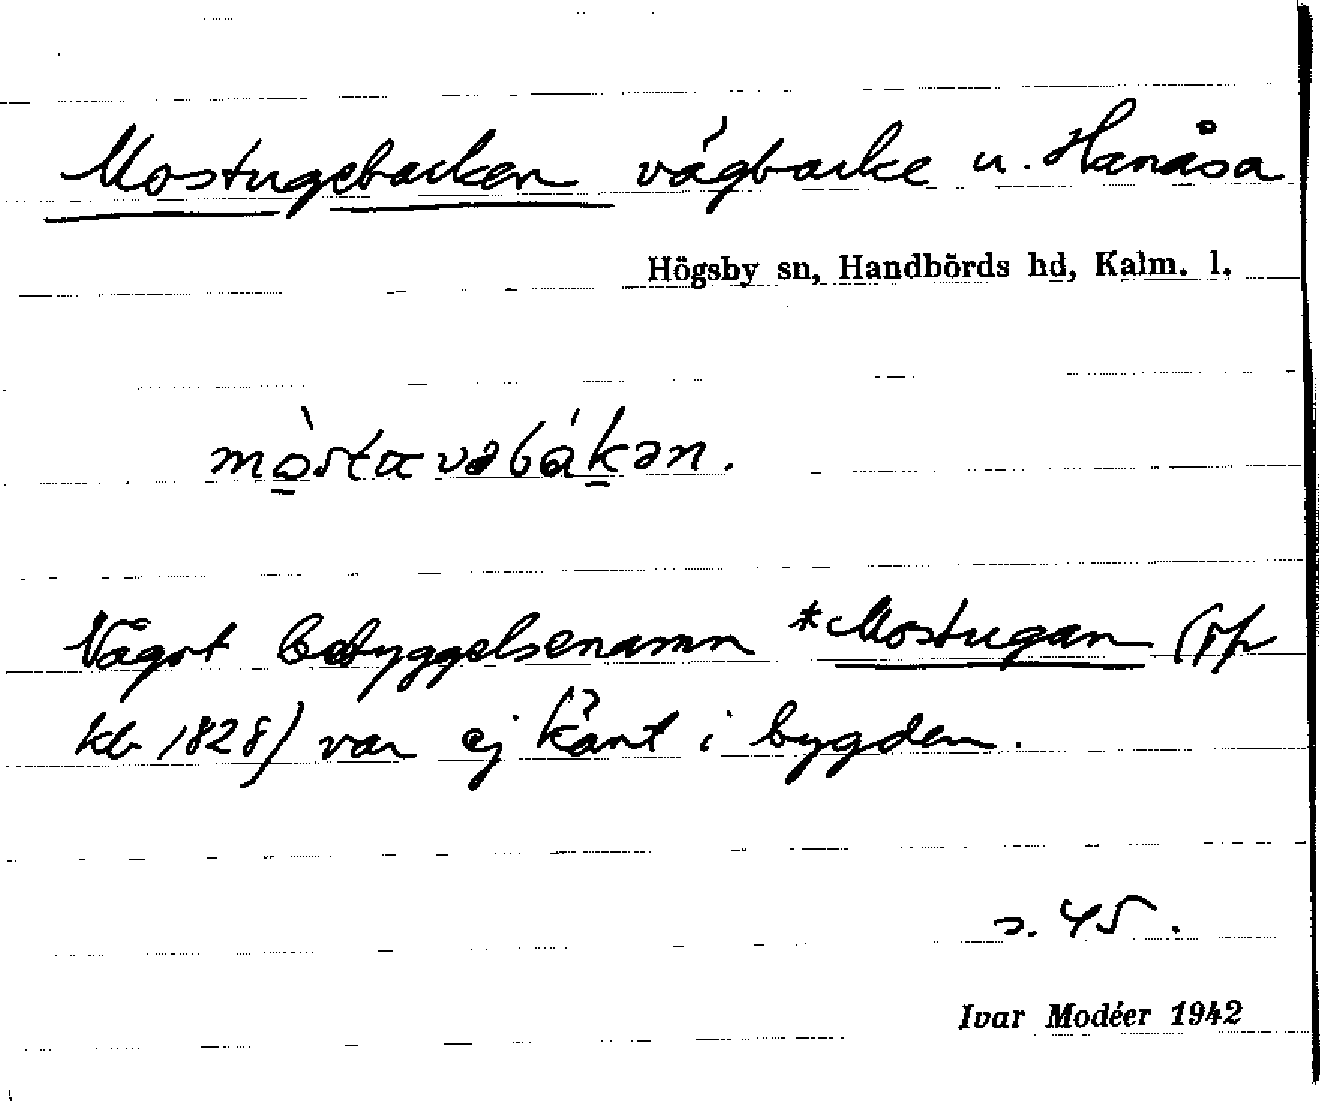 Mostugebacken vägbacke u. Hanåsa
Högsby sn, Handbörds hd, Kalm. l.
mòstuvəbákən.
Något bebyggelsenamn *Mostugan (rp
kb 1828) var ej känt i bygden.
s. 45.
Ivar Modéer 1942